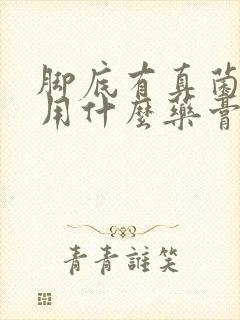 脚底有真菌
用什麼藥膏
青青誰笑